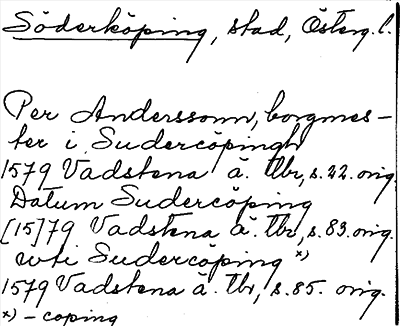 Söderköping, stad, Österg. l.
Per Anderssonn, borgmes-
ter i Sudercöpingh
1579 Vadstena ä. tbr, s. 22. orig.
Datum Sudercöping
[15]79 Vadstena ä. tbr, s. 83. orig.
uti Sudercöping x)
1579 Vadstena ä. tbr, s. 85. orig.
x) - coping